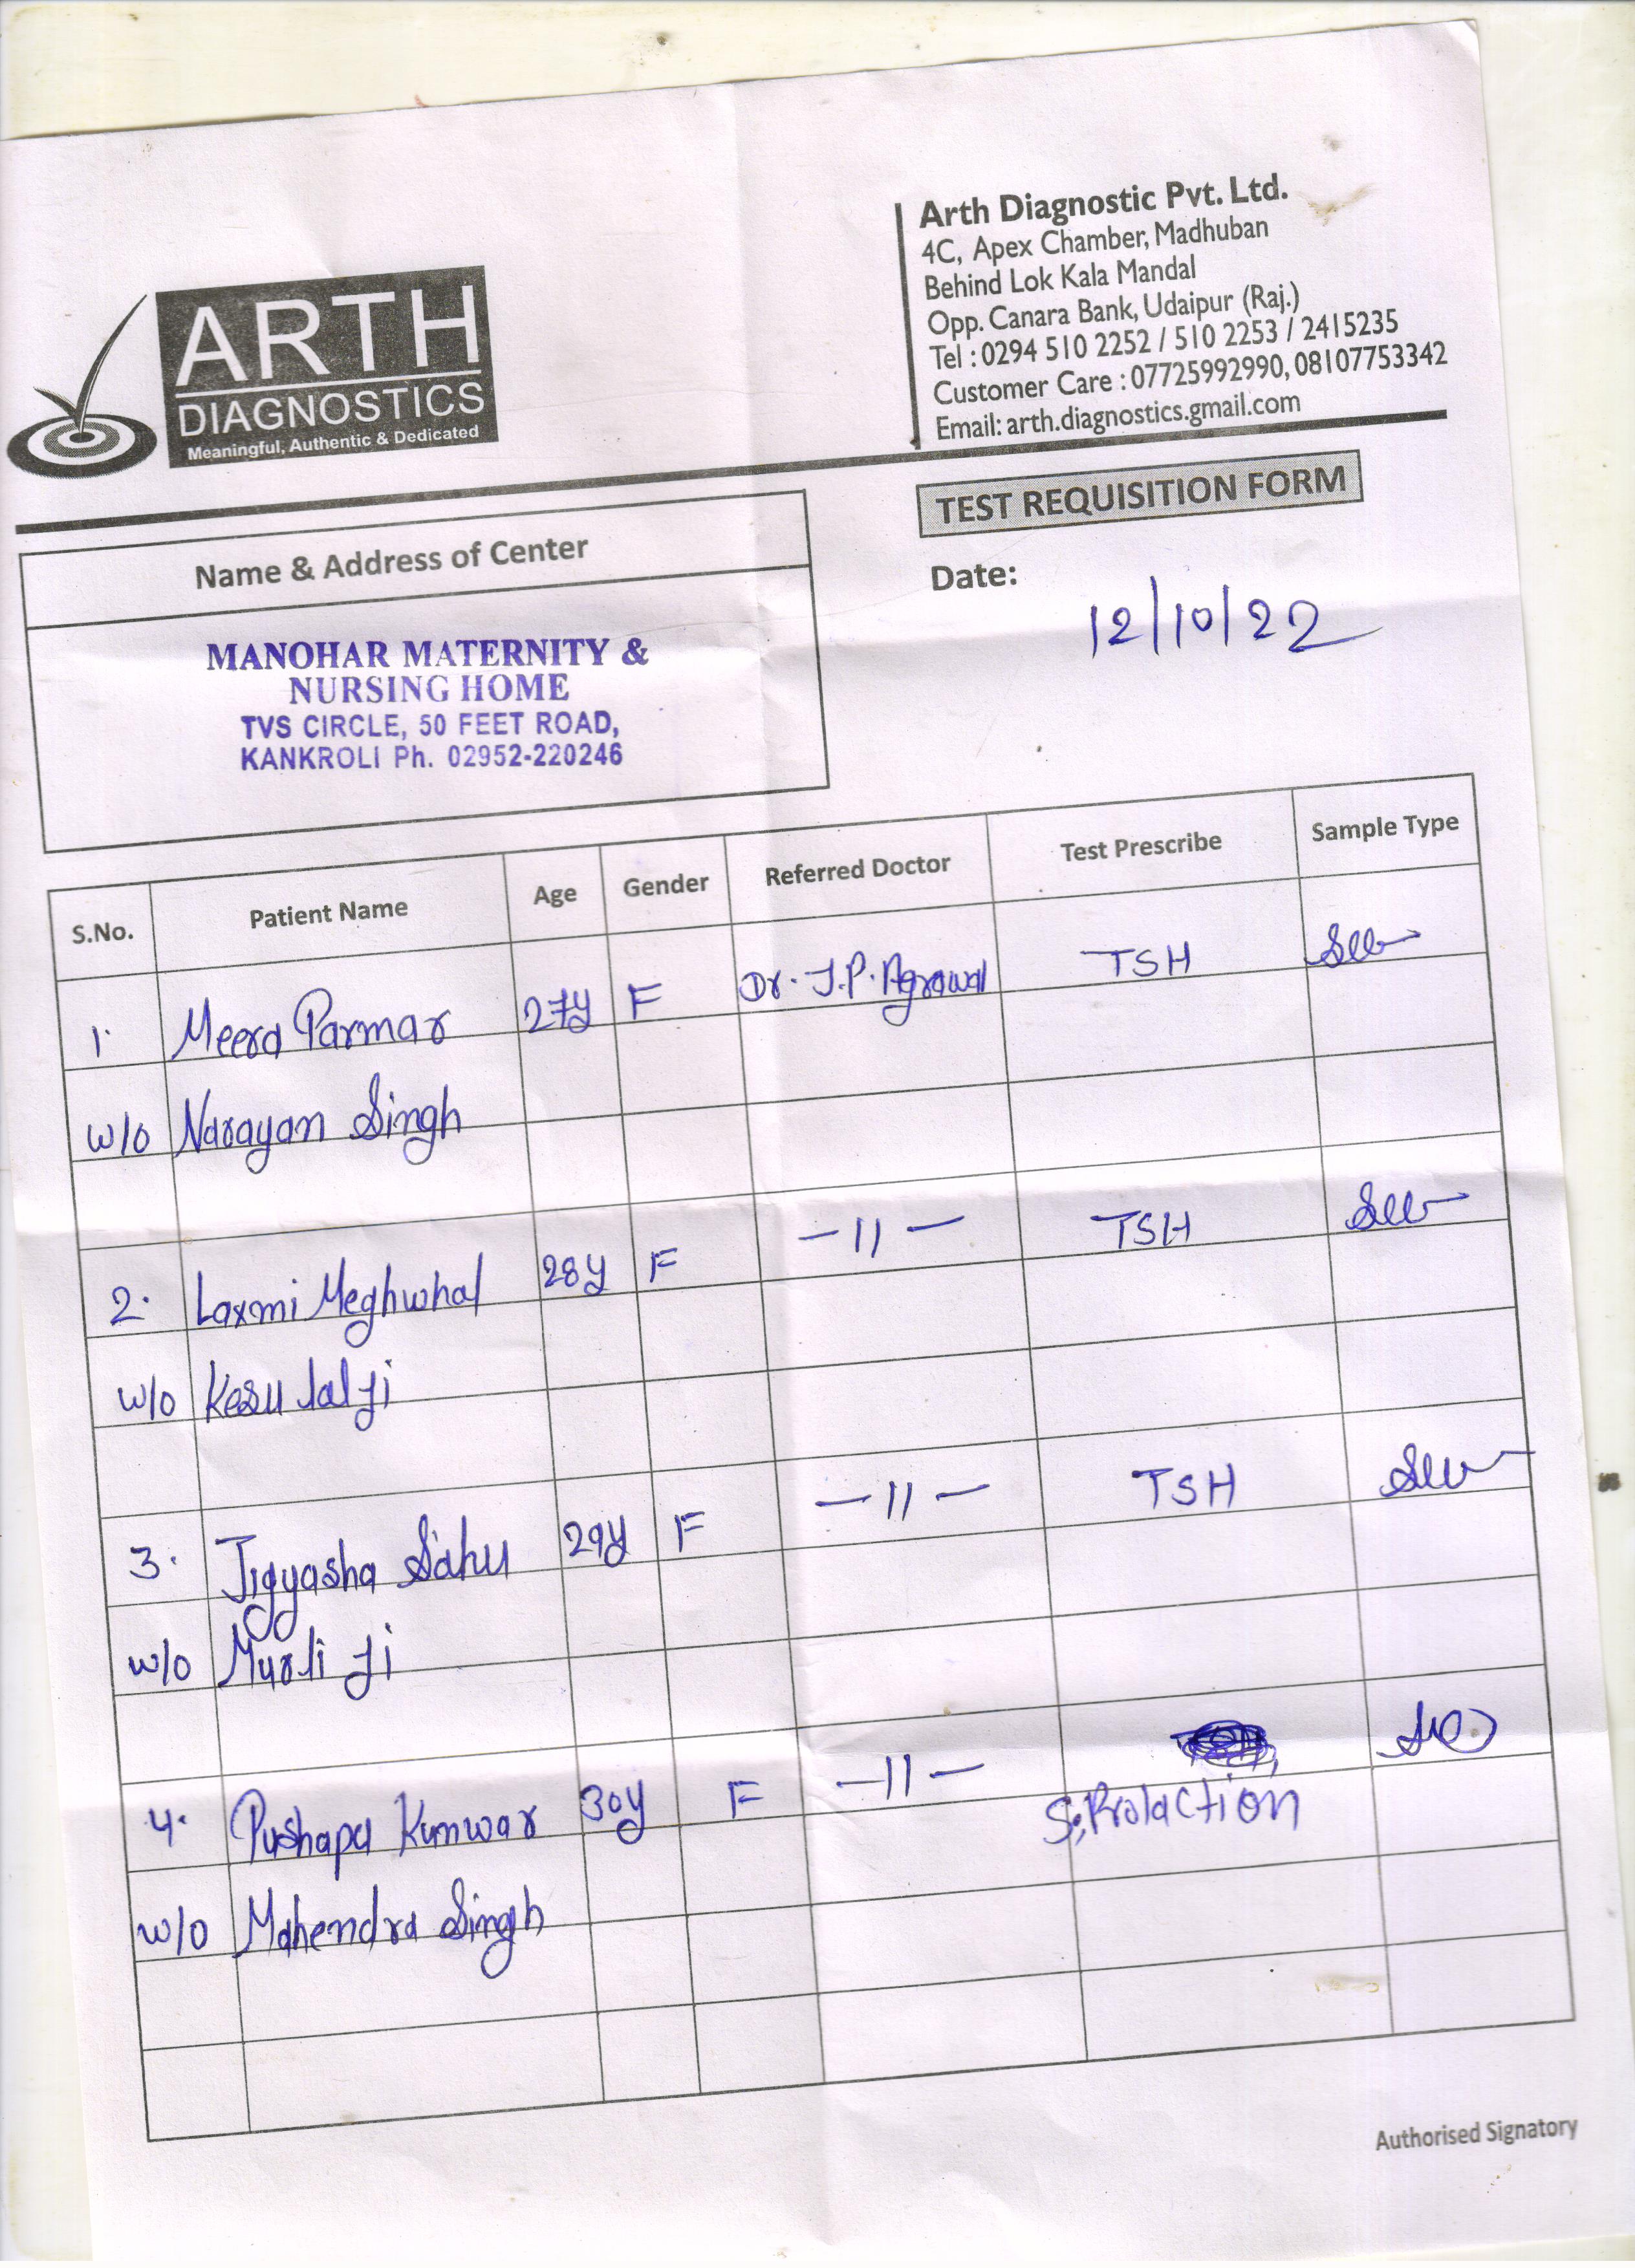 Arth Diagnostic Pvt. Ltd.
4C, Apex Chamber, Madhuban
Behind Lok Kala Mandal
Opp. Canara Bank, Udaipur (Raj.)
Tel : 0294 510 2252 / 510 2253 / 2415235
Customer Care : 07725992990, 08107753342
Email: arth.diagnostics.gmail.com
ARTH
DIAGNOSTICS
Meaningful, Authentic & Dedicated
TEST REQUISITION FORM
Name & Address of Center
Date:
12/10/22
MANOHAR MATERNITY &
NURSING HOME
TVS CIRCLE, 50 FEET ROAD,
KANKROLI Ph. 02952-220246
S.No. Patient Name Age Gender Referred Doctor Test Prescribe Sample Type
1. Meera Parmar 27y F Dr. J.P. Agrawal TSH
w/o Narayan Singh
2. Laxmi Meghwhal 28y F -11- TSH
w/o Kesu lal ji
3. Jigyasha Sahu 29y F -11- TSH
w/o Murli ji
4. Pushapa Kunwar 30y F -11-
S. Prolaction
w/o Mahendra Singh
Authorised Signatory